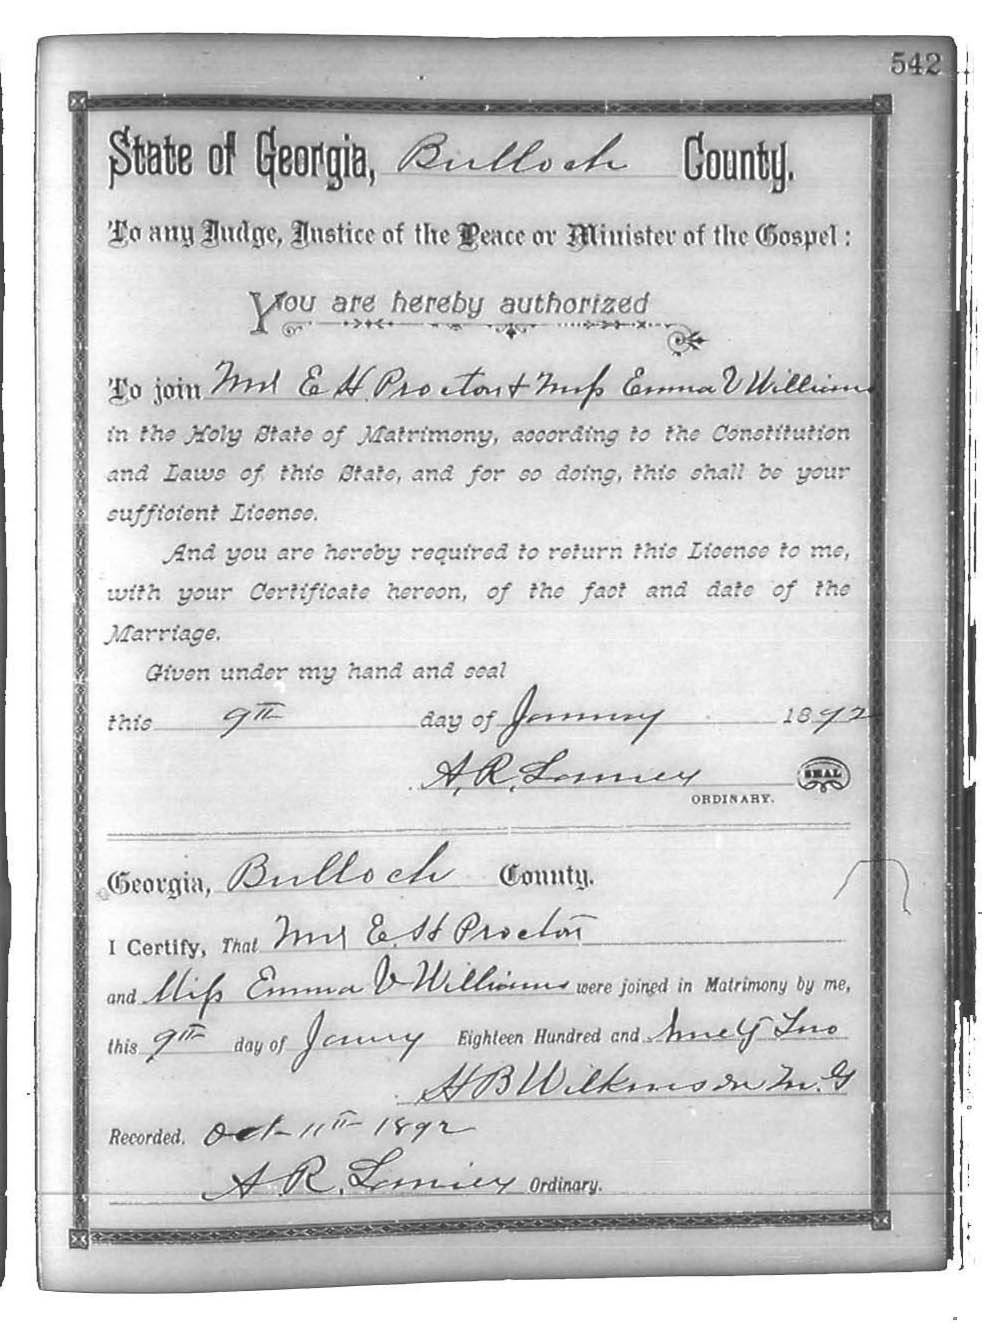 542
State of Georgia, Bulloch County.
To any Judge, Justice of the Peace or Minister of the Gospel:
You are hereby authorized
To join Mr E H Proctor & Miss Emma V Williams
in the Holy State of Matrimony, according to the Constitution
and Laws of this State, and for so doing, this shall be your
sufficient License.
And you are hereby required to return this License to me,
with your Certificate hereon, of the fact and date of the
Marriage.
Given under my hand and seal
this 9th day of January 1892
A. R. Lanier SEAL
ORDINARY.
Georgia, Bulloch County.
I Certify, That Mr E. H Proctor
and Miss Emma V Williams were joined in Matrimony by me,
this 9th day of Jany Eighteen Hundred and Ninety Two
H B Wilkinson M. G
Recorded, Oct 11th 1892
A. R. Lanier Ordinary.